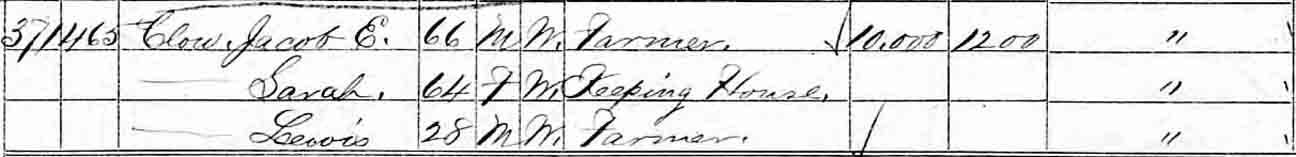 371 465 Clow, Jacob E. 66 M W. Farmer. 10.000 1200 "
— Sarah. 64 F W. Keeping House. "
— Lewis 28 M W. Farmer. "